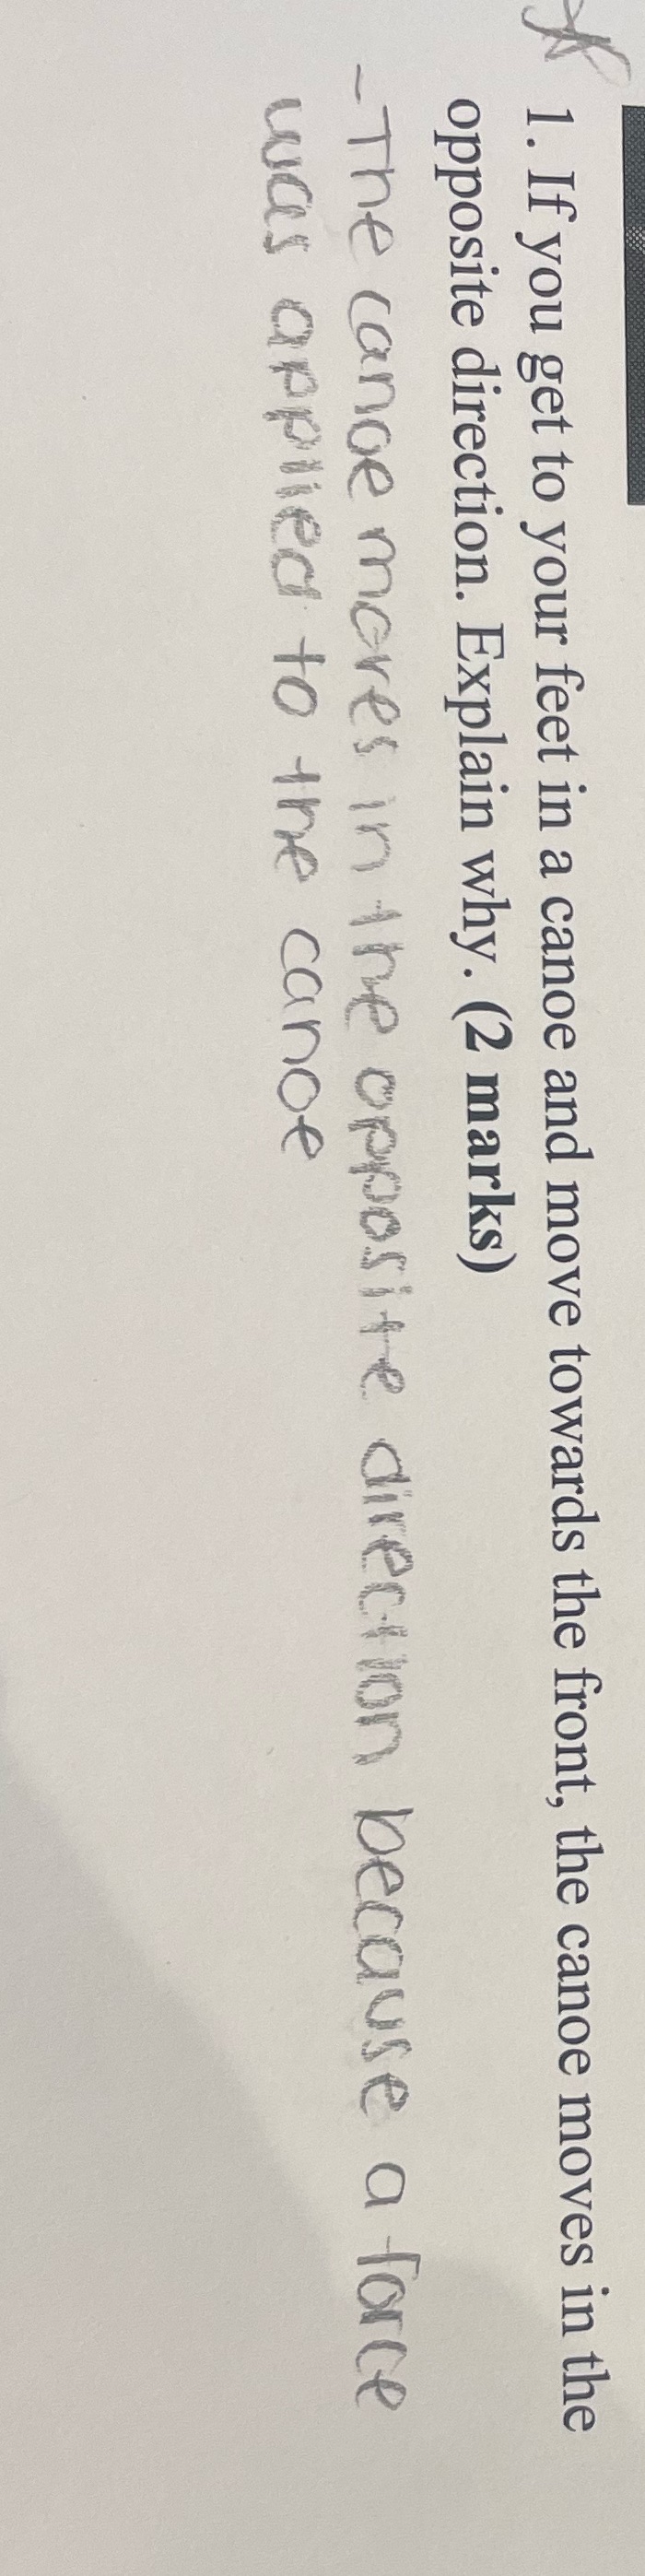 1. If you get to your feet in a canoe and move towards the front, the canoe moves in the
opposite direction. Explain why. (2 marks)
- The canoe moves in the opposite direction because a force
was applied to the canoe